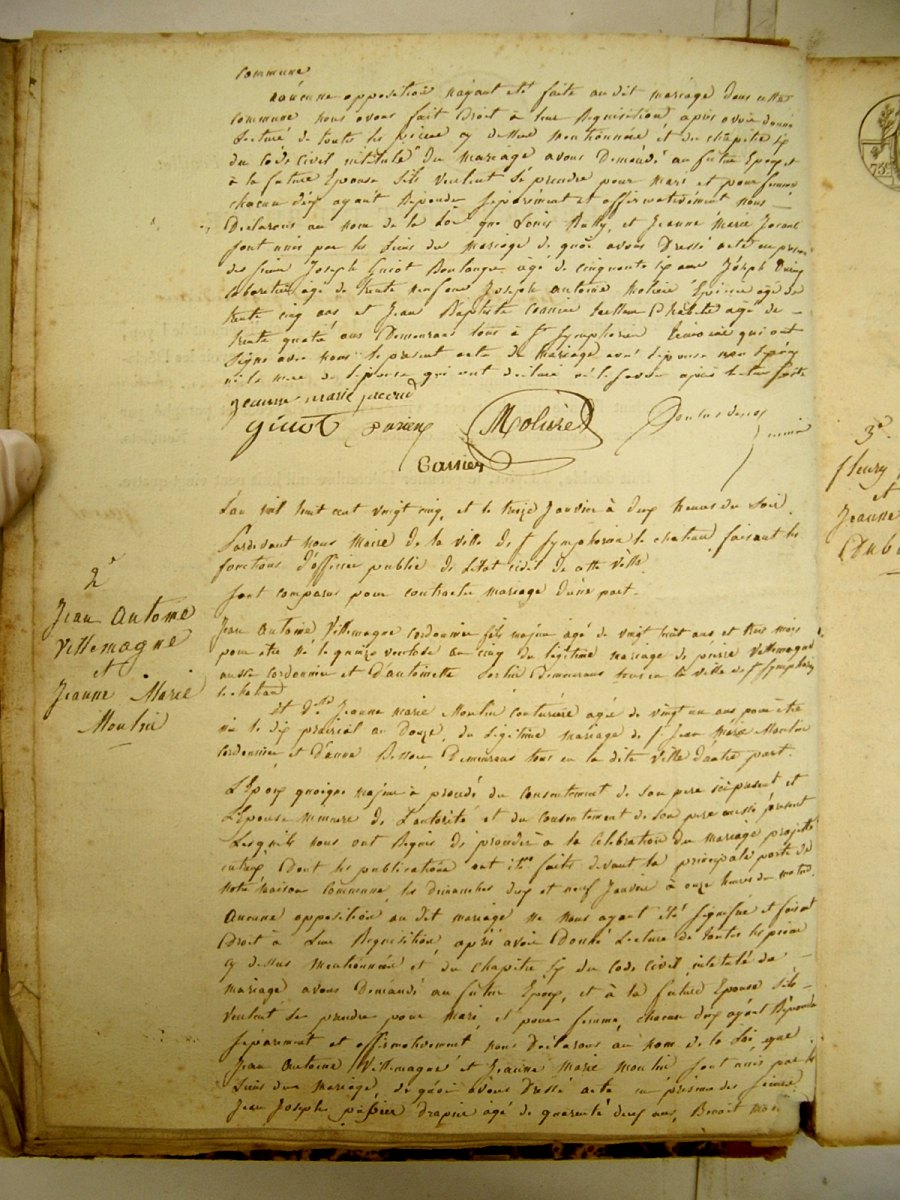 commune
aucune opposition nayant été faite au dit mariage dans cette
commune nous avons fait droit à leur Requisition après avoir donné
Lecture de toutes les pieces cy dessus mentionnées et du chapitre six
du Code Civil intitulé Du Mariage avons Demandé au futur Epoux et
à la future Epouse s'ils veulent se prendre pour mari et pour femme
chacun d'eux ayant Repondu separement et affirmativement nous
Declarons au nom de la Loi que Louis et Jeanne Marie
sont unis par les Liens du mariage de quoi avons Dressé acte en
des sieurs Joseph Guiot Boulanger agé de cinquante six ans Joseph
agé de trente Joseph Antoine Molière Epicier agé de
trente cinq ans et Jean Baptiste agé de
trente quatre ans Demeurans tous à St Symphorien qui ont
signé avec nous le present acte de mariage
ni la mere de l'epouse qui ont declaré ne le savoir après lecture faite
jeanne marie
guiot Molière
L'an mil huit cent vingt cinq, et le treize Janvier à deux heures du soir
Pardevant nous Maire de la ville de St Symphorien le chateau faisant les
fonctions d'officier public de l'etat civil de cette ville
sont comparus pour contracter mariage d'une part.
2e
Jean Antoine
Villemagne
et
Jeanne Marie
Moulin
Jean Antoine Villemagne cordonnier fils majeur agé de vingt huit ans et trois mois
pour etre né le quinze ventose an cinq du légitime mariage de pierre Villemagne
aussi cordonnier et d'antoinette Demeurans tous en la ville de St Symphorien
le chateau
Et dlle Jeanne marie Moulin couturière agée de vingt un ans pour etre
née le dix prairial an Douze, du legitime mariage de Sr Jean Marie Moulin
cordonnier et d'anne Demeurans tous en la dite ville d'autre part.
L'Epoux quoique majeur a procédé du consentement de son pere ici present et
L'Epouse mineure de L'autorité et du consentement de son pere aussi present
Lesquels nous ont Requis de procéder à la celebration du mariage projetté
entr'eux Dont les publications ont été faites devant la principale porte de
notre maison commune les dimanches deux et neuf Janvier à onze heures du matin.
Aucune opposition au dit mariage ne nous ayant été signifié et faisant
Droit à Leur Requisition, après avoir Donné Lecture de toutes les pieces
cy dessus mentionnées et du chapitre six du Code Civil intitulé du
mariage avons Demandé au futur Epoux, et à la future Epouse s'ils
veulent se prendre pour mari, et pour femme, chacun d'eux ayant Répondu
séparement et affirmativement, nous Declarons au nom de la Loi que
Jean Antoine Villemagne et Jeanne Marie moulin sont unis par les
Liens du mariage, de quoi avons Dressé acte en présence des sieurs
Jean Joseph drapier agé de quarente deux ans, Benoit
3e
fleury
et
Jeanne